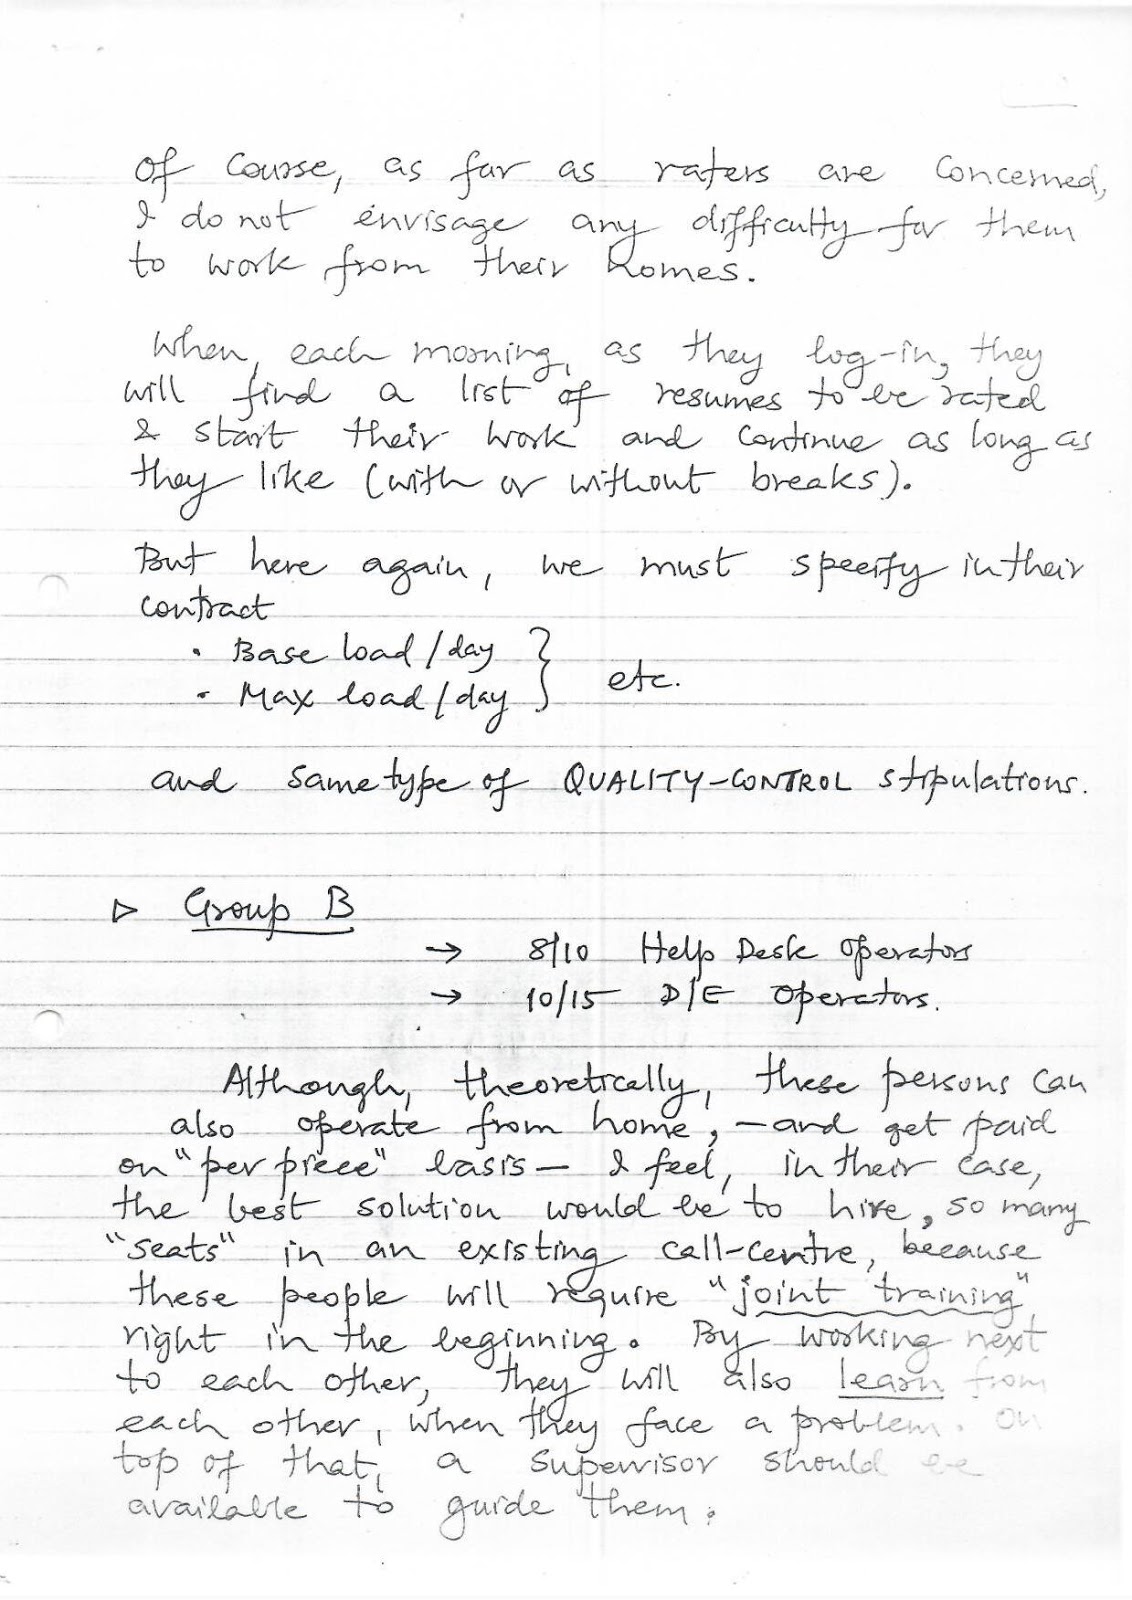 Of course, as far as raters are concerned,
I do not envisage any difficulty for them
to work from their homes.
When, each morning, as they log-in, they
will find a list of resumes to be rated
& start their work and continue as long as
they like (with or without breaks).
But here again, we must specify in their
contract
• Base load/day
• Max load/day } etc.
and same type of QUALITY-CONTROL stipulations.
▷ Group B
→ 8/10 Help Desk Operators
→ 10/15 D/E Operators.
Although, theoretically, these persons can
also operate from home, - and get paid
on "per piece" basis - I feel, in their case,
the best solution would be to hire, so many
"seats" in an existing call-centre, because
these people will require "joint training"
right in the beginning. By working next
to each other, they will also learn from
each other, when they face a problem. On
top of that, a supervisor should be
available to guide them.